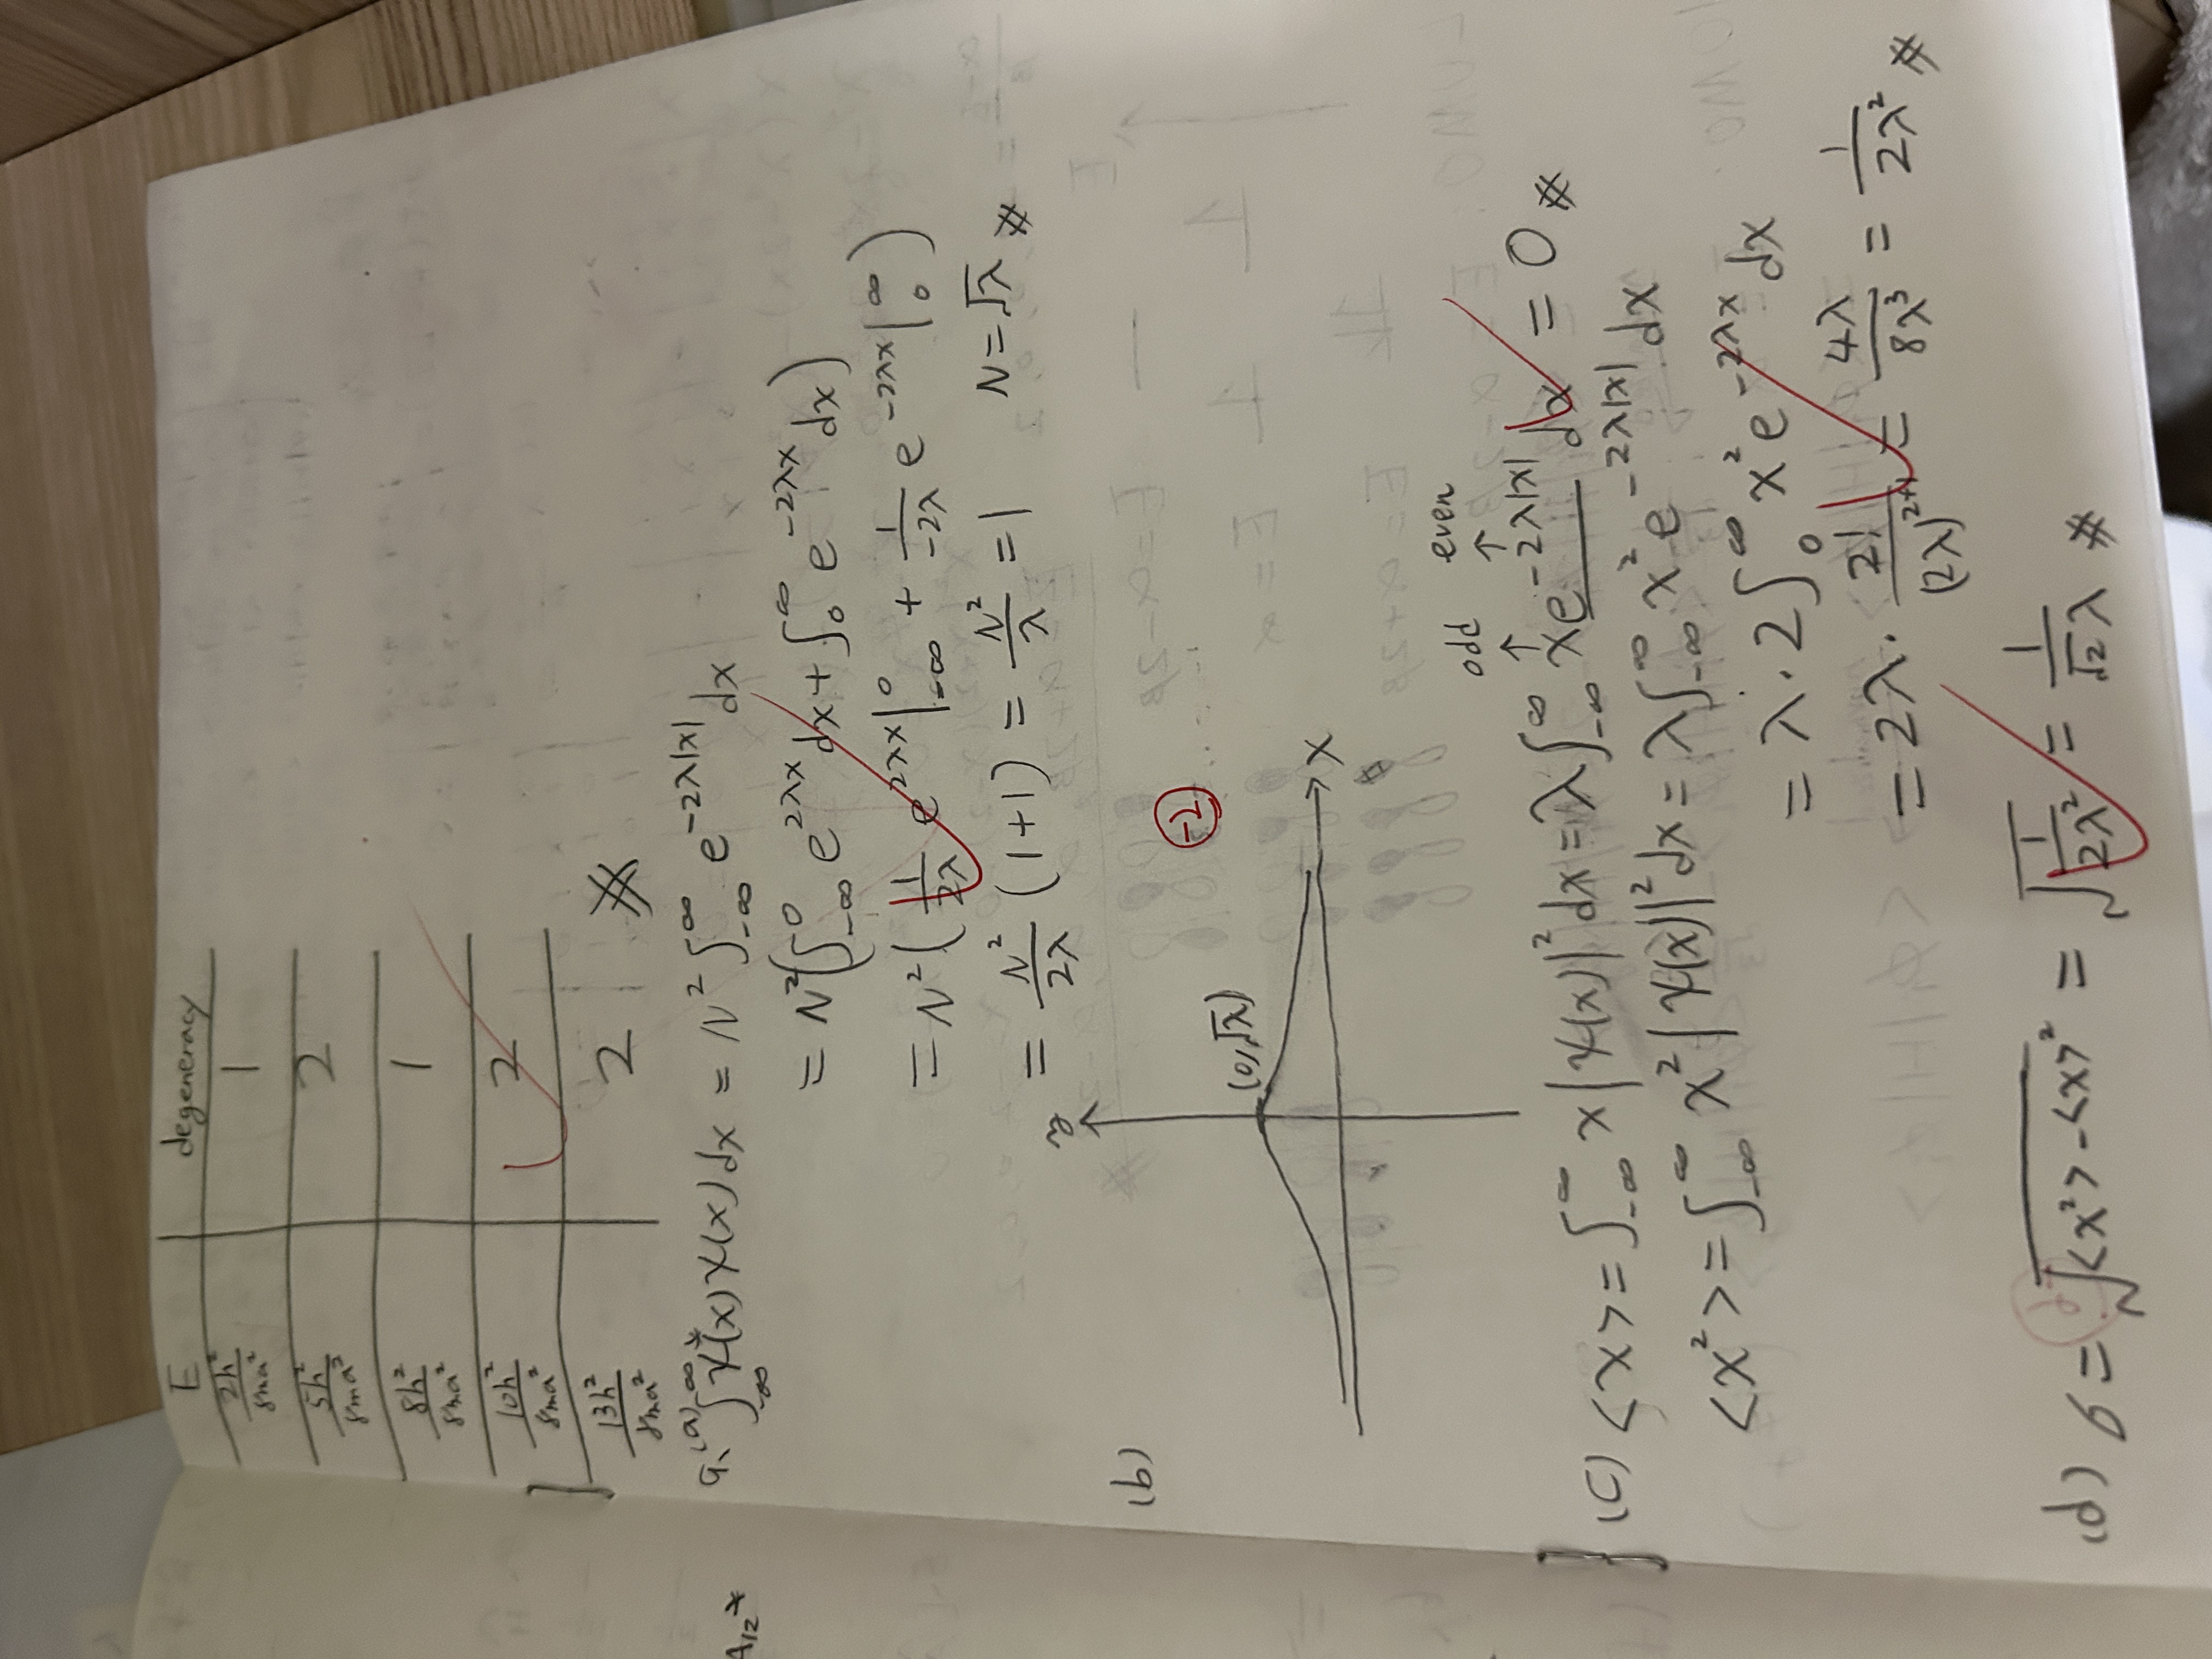 E degeneracy
2h²/8ma² 1
5h²/8ma² 2
8h²/8ma² 1
10h²/8ma² 2
13h²/8ma² 2 #
A₁₂*
9.(a) ∫_{-∞}^{∞} ψ*(x)ψ(x)dx = N² ∫_{-∞}^{∞} e^{-2λ|x|} dx
= N²(∫_{-∞}^{0} e^{2λx} dx + ∫_{0}^{∞} e^{-2λx} dx)
= N²( 1/2λ e^{2λx}|_{-∞}^{0} + 1/-2λ e^{-2λx}|_{0}^{∞} )
= N²/2λ (1+1) = N²/λ = 1 N=√λ #
y
(b)
-2
(0,√λ)
x
#
odd even
(c) <x> = ∫_{-∞}^{∞} x|ψ(x)|² dx = λ∫_{-∞}^{∞} x e^{-2λ|x|} dx = 0 #
<x²> = ∫_{-∞}^{∞} x²|ψ(x)|² dx = λ∫_{-∞}^{∞} x² e^{-2λ|x|} dx
= λ·2∫_{0}^{∞} x² e^{-2λx} dx
= 2λ· 2!/(2λ)^{2+1} = 4λ/8λ³ = 1/2λ² #
(d) σ = √(<x²>-<x>²) = √(1/2λ²) = 1/√2λ #